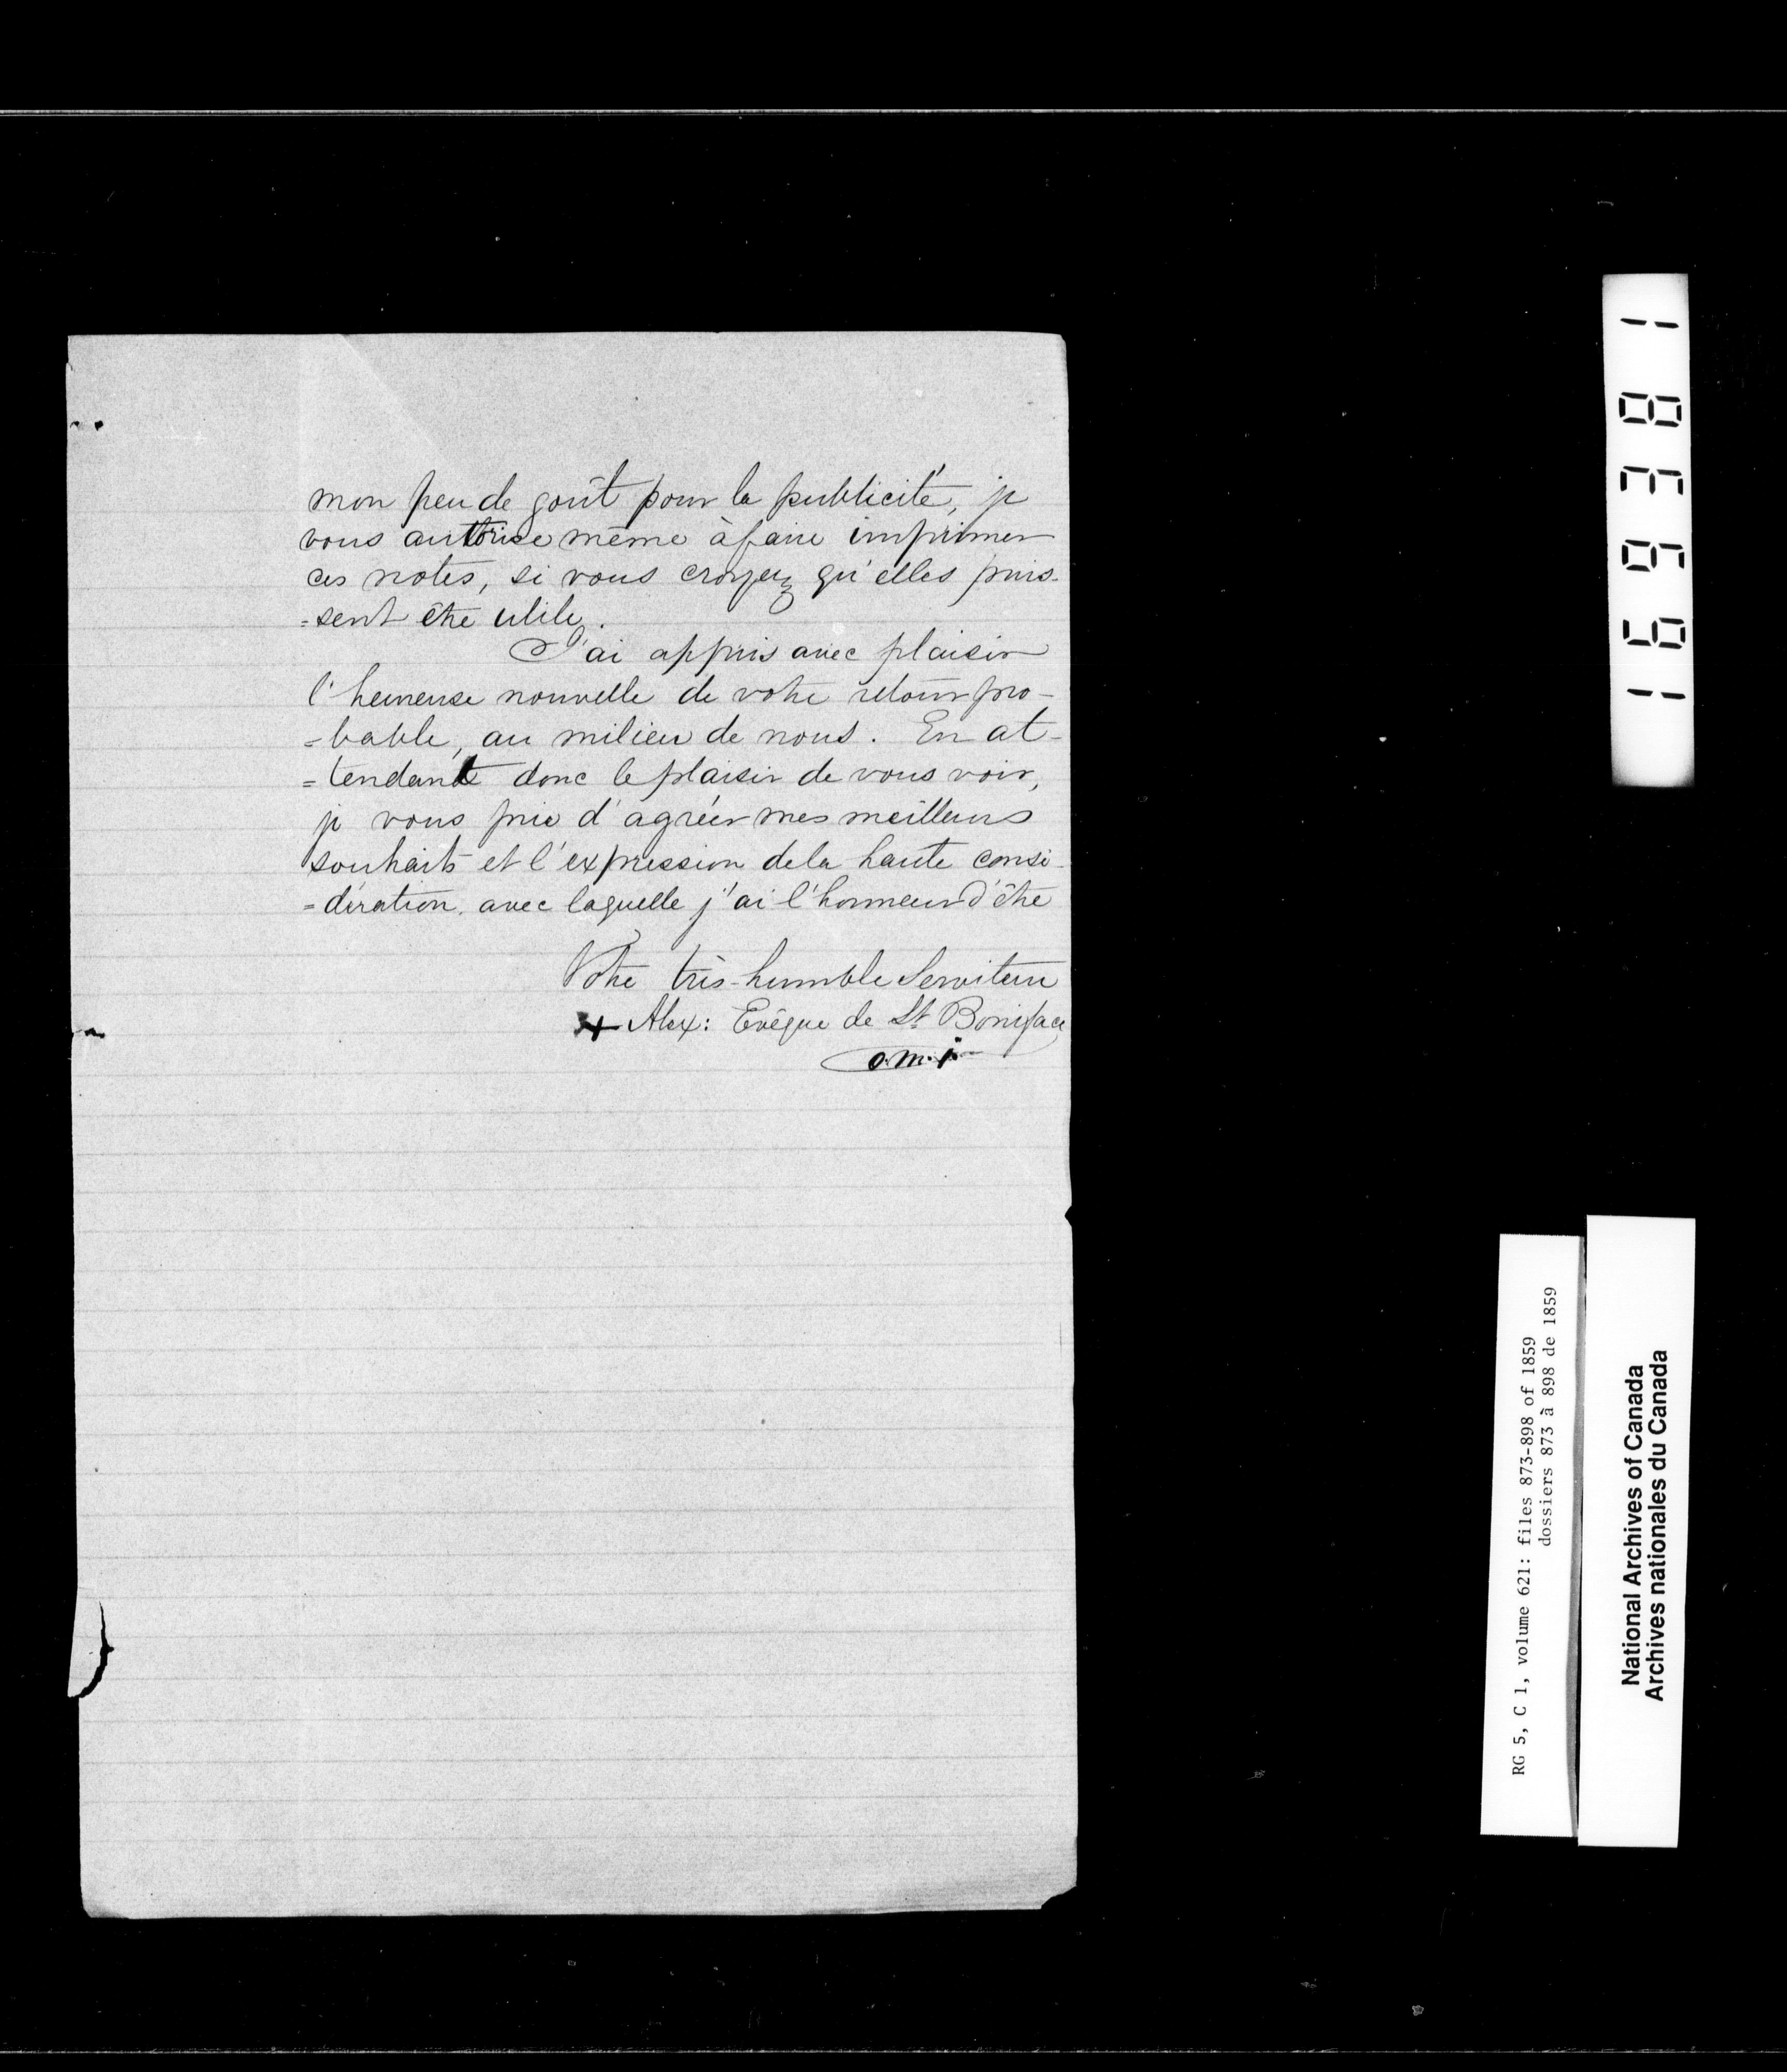 mon peu de goût pour la publicité, je
vous autorise même à faire imprimer
ces notes, si vous croyez qu'elles puis-
=sent être utile.
J'ai appris avec plaisir
l'heureuse nouvelle de votre retour pro-
=bable, au milieu de nous. En at-
=tendant donc le plaisir de vous voir,
je vous prie d'agréer mes meilleurs
souhaits et l'expression de la haute consi-
=dération, avec laquelle j'ai l'honneur d'être
Votre très-humble Serviteur
+ Alex: Evêque de St Boniface
o.m.i.
169381
RG 5, C 1, volume 621: files 873-898 of 1859
dossiers 873 à 898 de 1859
National Archives of Canada
Archives nationales du Canada